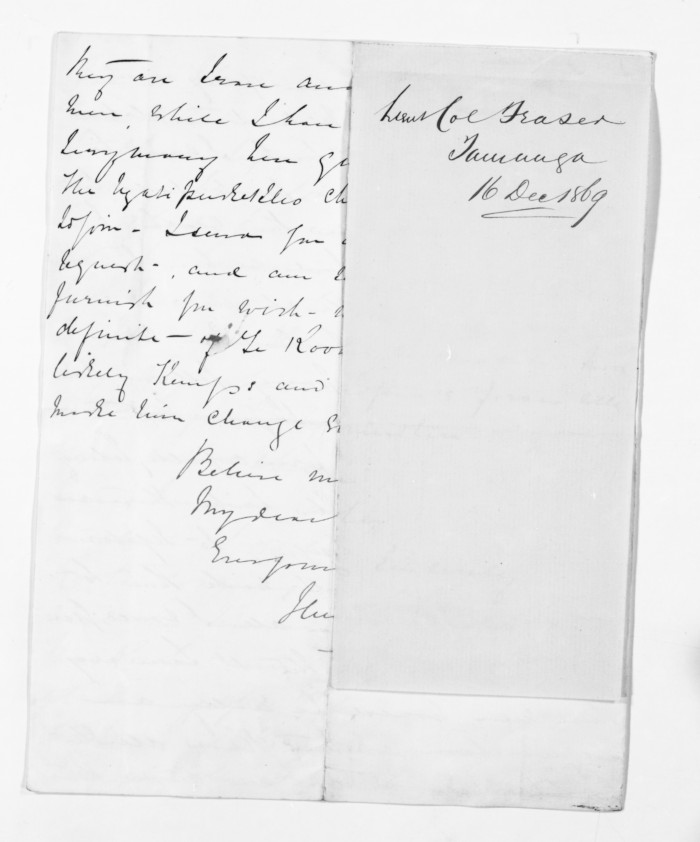 They are Iron and
men, while I have
The Ngatipukeko ch
to join - I send for
request -, and am
furnish you wish -
definite - of Te Koo
likely Kemp's and
make him change
Believe m
My dear
Ever your
Lieut Col Fraser
Tauranga
16 Dec 1869